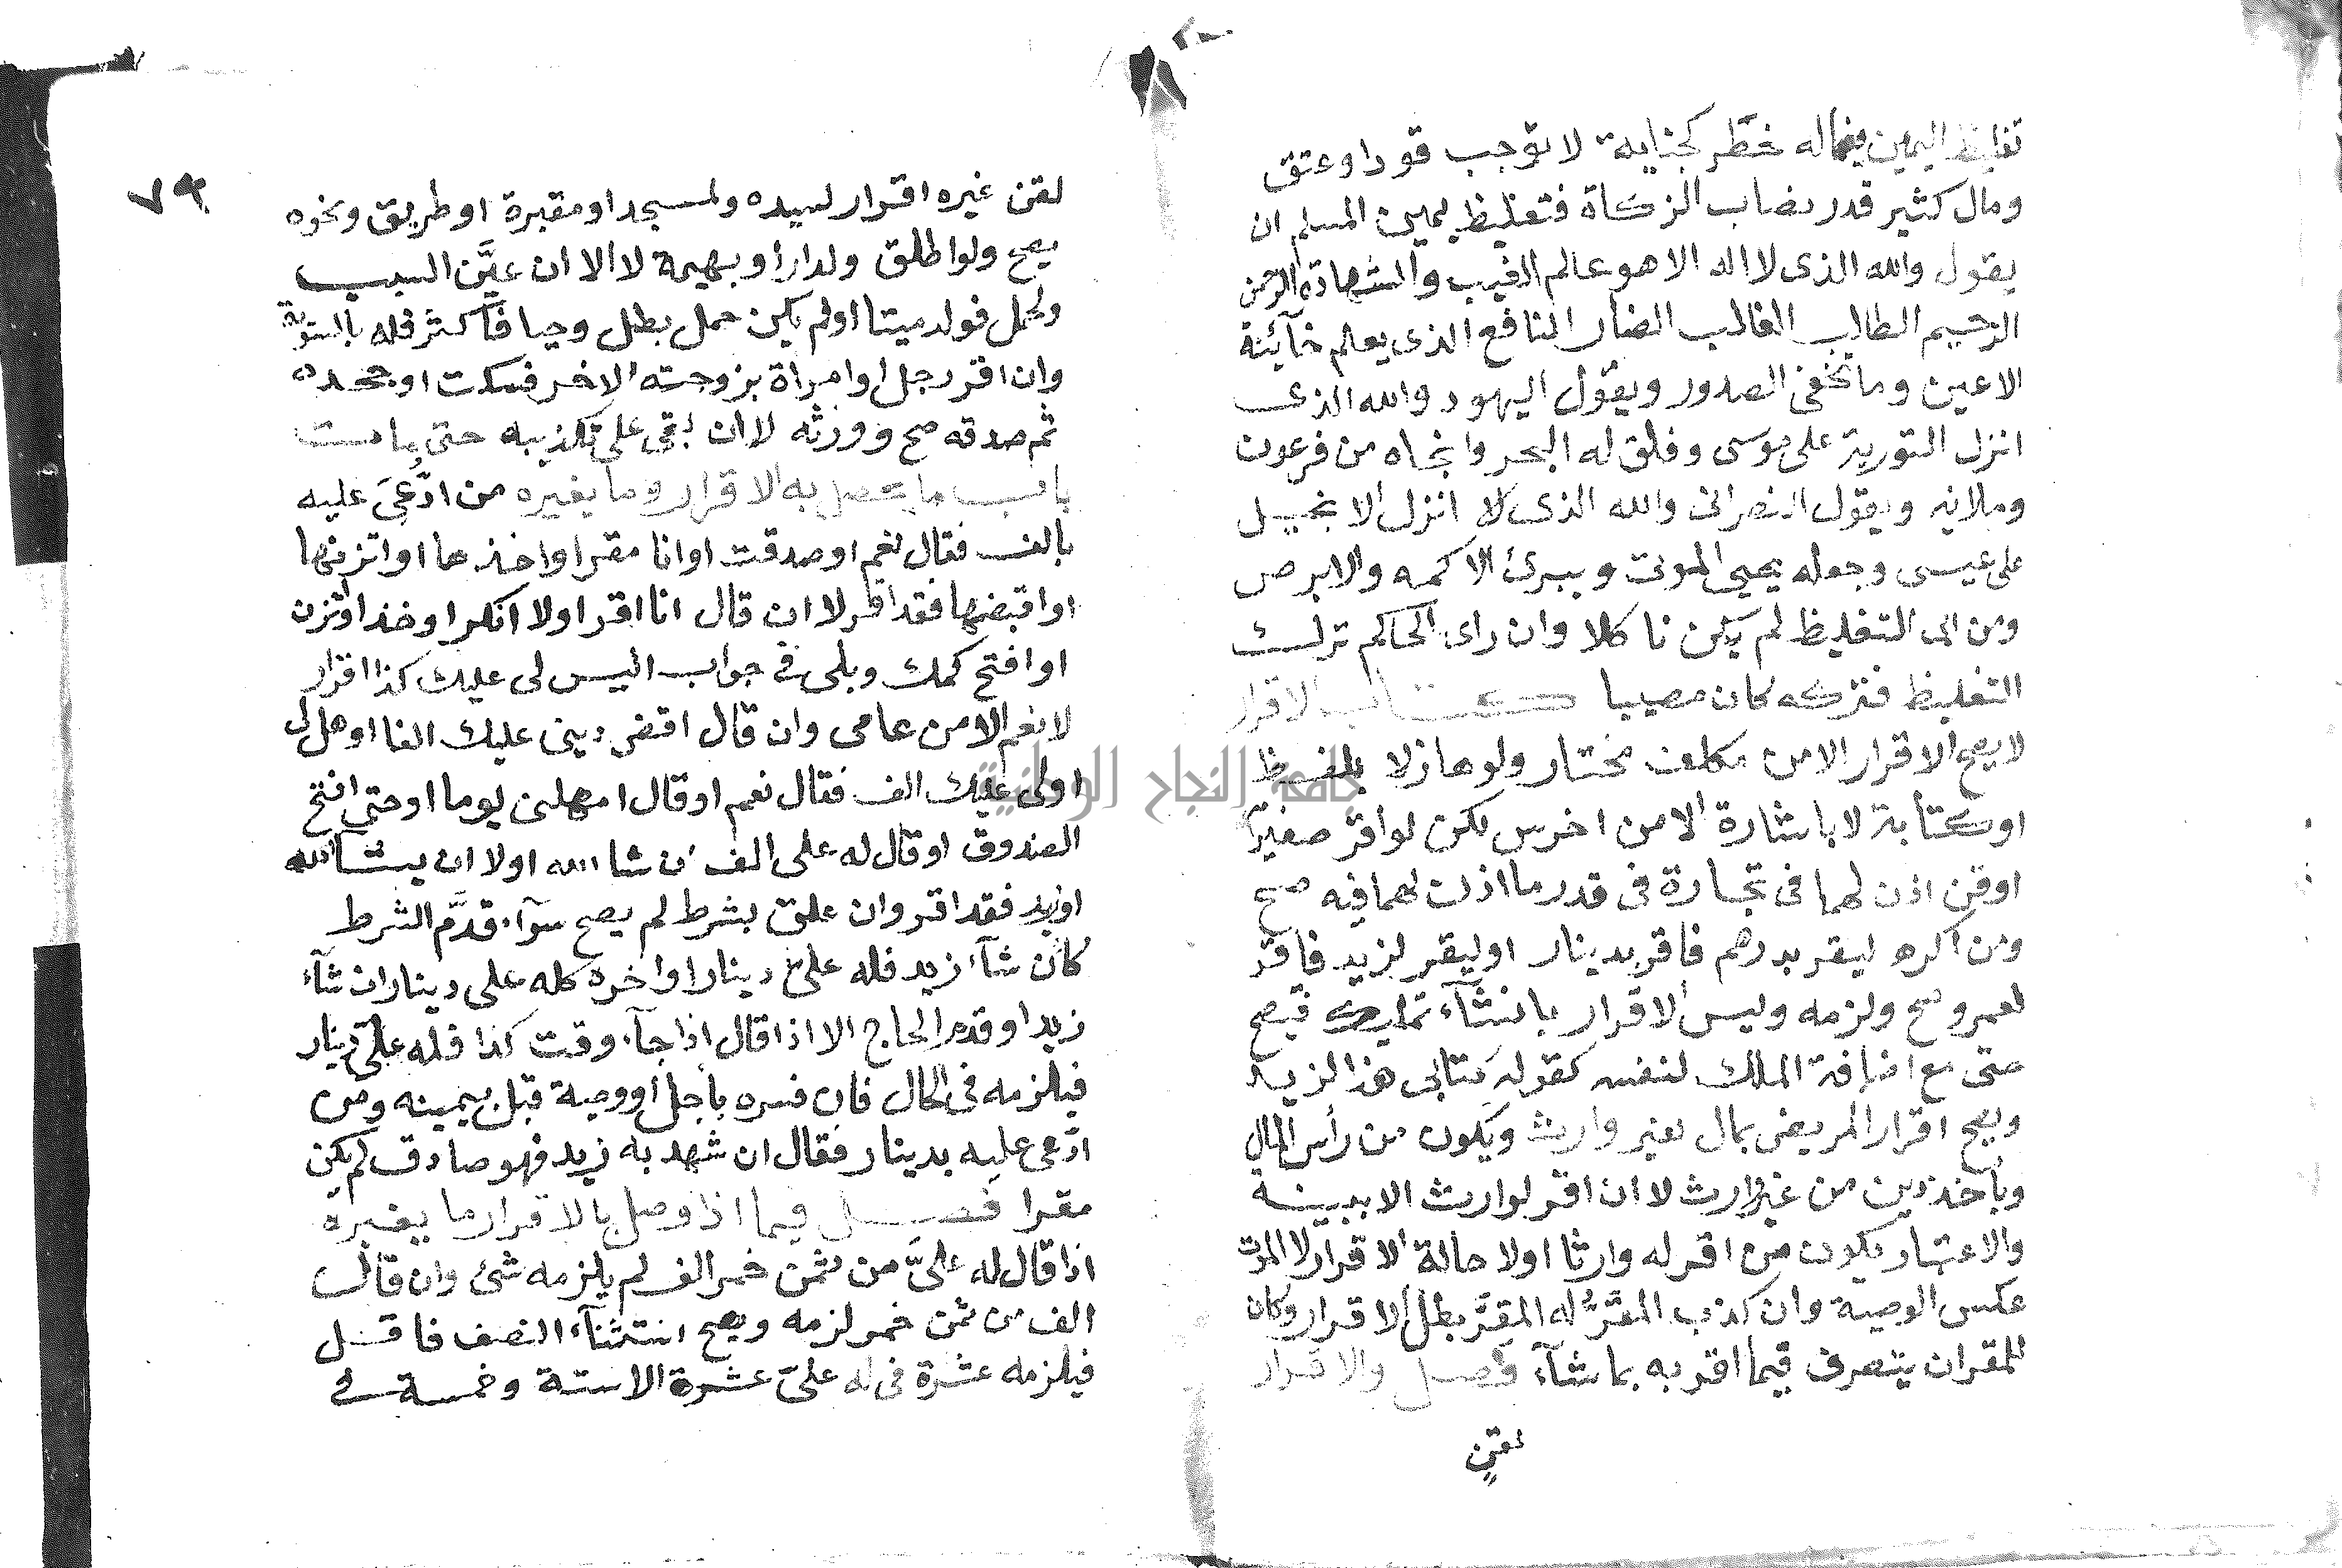 تغليظ اليمين فيما له خطر كجناية لا توجب قودا وعتق
ومال كثير قدر نصاب الزكاة فتغليظ يمين المسلم ان
يقول والله الذى لا اله الا هو عالم الغيب والشهادة الرحمن
الرحيم الطالب الغالب الضار النافع الذى يعلم خآئنة
الاعين وما تخفى الصدور ويقول اليهود والله الذى
انزل التورية على موسى وفلق له البحر وانجاه من فرعون
وملائه ويقول النصرانى والله الذى انزل الانجيل
على عيسى وجعله يحيى الموتى ويبرئ الاكمه والابرص
ومن ابى التغليظ لم يكن ناكلا وان راى الحاكم ترك
التغليظ فتركه كان مصيبا كتاب الاقرار
لا يصح الاقرار الا من مكلف مختار ولو هازلا بلفظ
او كتابة لا باشارة الا من اخرس لكن لو اقر صغير
او قن اذن لهما فى تجارة فى قدر ما اذن لهما فيه صح
ومن اكره ليقر بدرهم فاقر بدينار او ليقر لزيد فاقر
لعمرو صح ولزمه وليس الاقرار بانشآء تمليك فيصح
حتى مع اضافة الملك لنفسه كقوله كتابى هذا لزيد
ويصح اقرار المريض بمال لغير وارث ويكون من رأس المال
وبأخذ دين من غير وارث لا ان اقر لوارث الا ببينة
والاعتبار بكون من اقر له وارثا او لا حالة الاقرار لا الموت
عكس الوصية وان كذب المقَرُّ له المقِرَّ بطل الاقرار وكان
للمقر ان يتصرف فيما اقر به بما شآء فصل والاقرار
لقن
٧٩
لقن غيره اقرار لسيده ولمسجد او مقبرة او طريق ونحوه
يصح ولو اطلق ولدار او بهيمة لا الا ان عيَّن السبب
ولحمل فولد ميتا او لم يكن حمل بطل وحيا فاكثر فله بالسوية
وان اقر رجل او امراة بزوجية الاخر فسكت او جحده
ثم صدقه صح وورثه لا ان بقى على تكذيبه حتى مات
باب ما يحصل به الاقرار وما يغيره من ادُّعِىَ عليه
بالف فقال نعم او صدقت او انا مقر او اخذها او اتزنها
او اقبضها فقد اقر لا ان قال انا اقر او لا انكر او خذ او اتزن
او افتح كمك وبلى فى جواب اليس لى عليك كذا اقرار
لا نعم الا من عامى وان قال اقض دينى عليك الفا او هل لى
او لى عليك الف فقال نعم او قال امهلنى يوما او حتى افتح
الصندوق او قال له على الف ان شا الله او لا ان يشآ الله
او زيد فقد اقر وان علق بشرط لم يصح سوآء قدَّم الشرط
كان شآء زيد فله علىّ دينار او اخره كله على دينار ان شآء
زيد او قدم الحاج الا اذا قال اذا جآء وقت كذا فله علىّ دينار
فيلزمه فى الحال فان فسره بأجل او وصية قبل بيمينه ومن
ادّعى عليه بدينار فقال ان شهد به زيد فهو صادق لم يكن
مقرا فصل فيما اذا وصل بالاقرار ما يغيره
اذا قال له علىَّ من ثمن خمر الف لم يلزمه شئ وان قال
الف من ثمن خمر لزمه ويصح استثنآء النصف فاقل
فيلزمه عشرة فى له علىّ عشرة الا ستة وخمسة فى
جامعة النجاح الوطنية